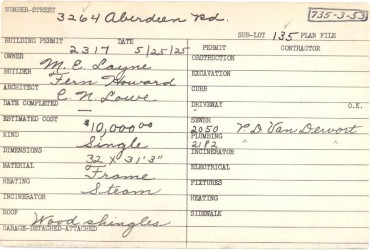 NUMBER-STREET 3264 Aberdeen Rd. 735-3-53
SUB-LOT 135 PLAN FILE
BUILDING PERMIT 2317 DATE 5/25/25 PERMIT CONTRACTOR
OWNER M. E. Layne OBSTRUCTION
BUILDER Fern Howard EXCAVATION
ARCHITECT C. N. Lowe CURB
DATE COMPLETED — DRIVEWAY O.K.
ESTIMATED COST $10,000.00 SEWER 2050 P. D. Van Dervort
KIND Single PLUMBING 2182 " "
DIMENSIONS 32 x 31'3" INCINERATOR
MATERIAL Frame ELECTRICAL
HEATING Steam FIXTURES
INCINERATOR HEATING
ROOF Wood shingles SIDEWALK
GARAGE-DETACHED-ATTACHED